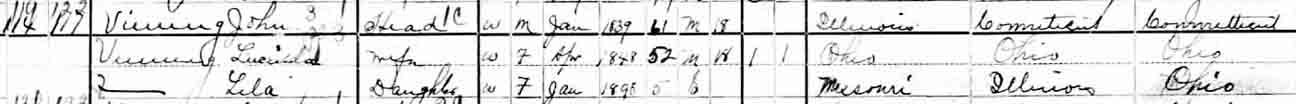 Vining John Head W M Jan 1839 61 M 18 Illinois Conneticut Connetticut
Vining Lucinda Wife W F Apr 1848 52 M 18 1 1 Ohio Ohio Ohio
Lila Daughter W F Jan 1895 5 S Missouri Illinois Ohio